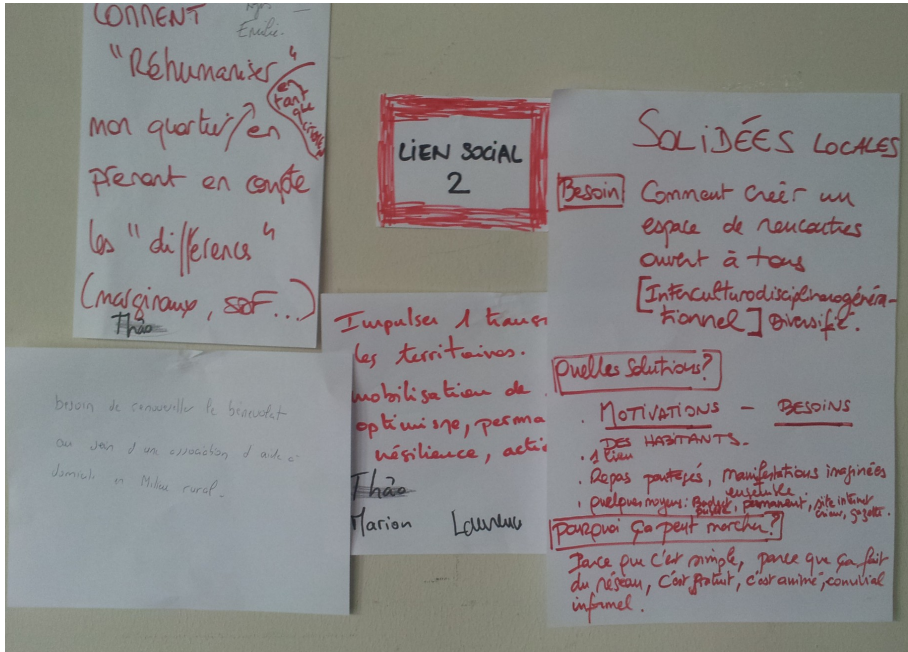 COMMENT
Emilie.
"Réhumaniser"
en tant que
mon quartier en
prenant en compte
les "différences"
(marginaux, SDF...)
Théo
LIEN SOCIAL
2
besoin de renouveller le bénévolat
au sein d'une association d'aide à
domicile en Milieu rural.
Impulser 1
les territoires.
mobilisation de
optimisme, perma
résilience, acti
Théo
Marion Laurence
SOLIDÉES LOCALES
Besoin Comment créer un
espace de rencontres
ouvert à tous
[Interculturodisciplinarogénéra-
tionnel] Diversifié.
Quelles Solutions?
. MOTIVATIONS - BESOINS
DES HABITANTS.
. 1 lieu
. Repas partagés, manifestations imaginées
ensemble
. Quelques moyens: Budget, permanent, site internet
gazette.
Pourquoi ça peut marcher?
Parce que c'est simple, parce que ça fait
du réseau, c'est gratuit, c'est animé, convivial
informel.